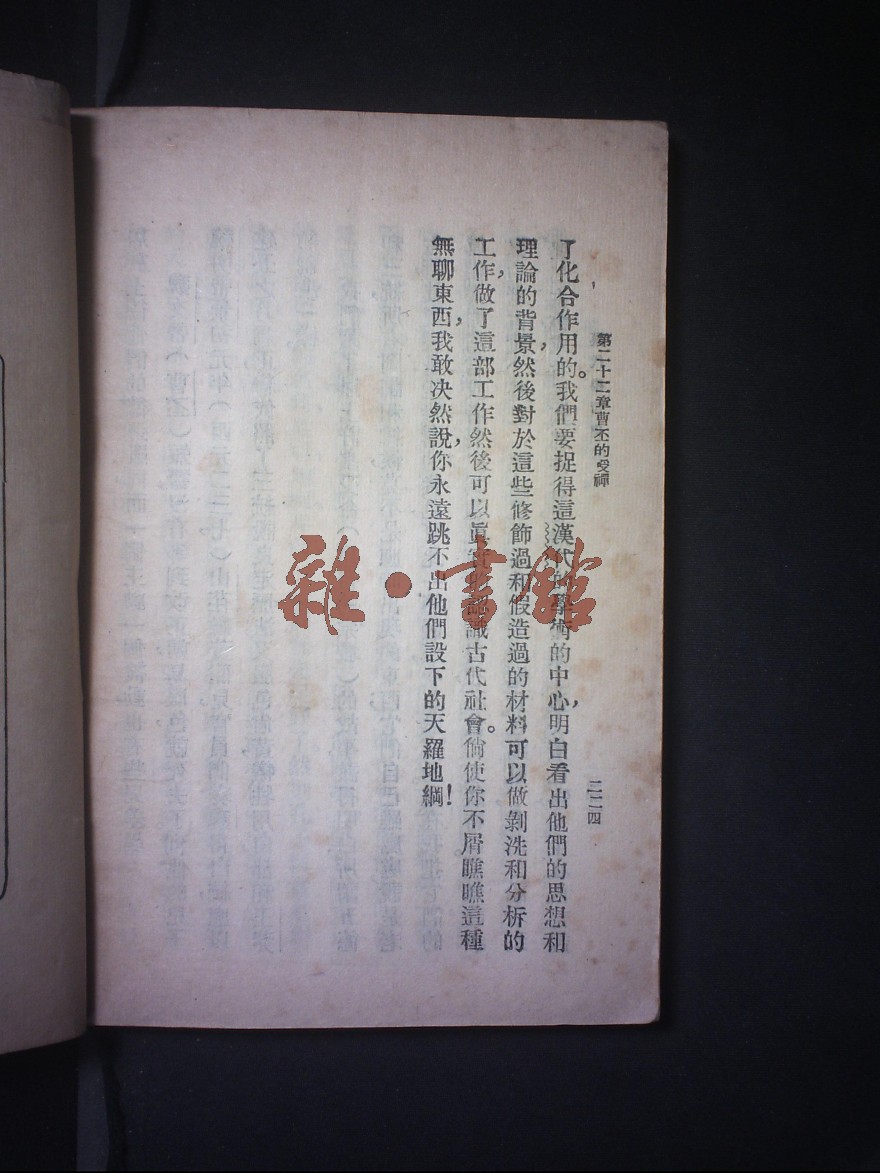 第二十二章曹丕的受禪
二二四
了化合作用的。我們要捉得這漢代的學術的中心，明白看出他們的思想和
理論的背景，然後對於這些修飾過和假造過的材料可以做剝洗和分析的
工作，做了這部工作然後可以眞實地認識古代社會。倘使你不屑瞧瞧這種
無聊東西，我敢決然說，你永遠跳不出他們設下的天羅地網！
雜·書館